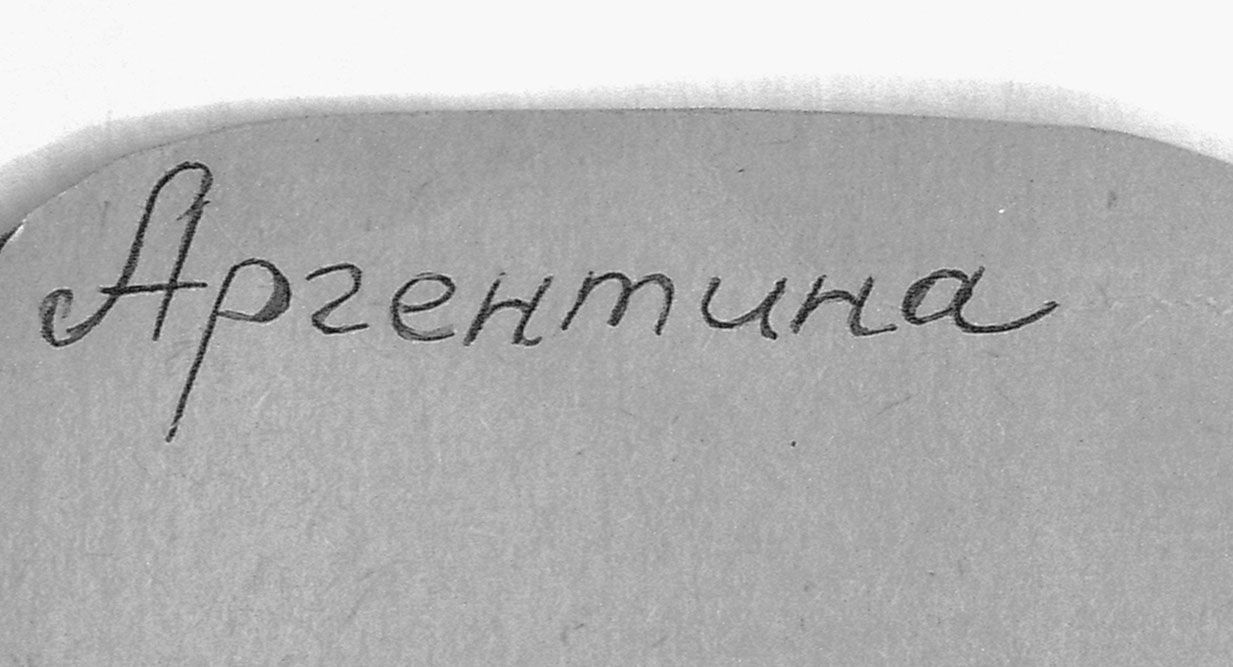 Аргентина